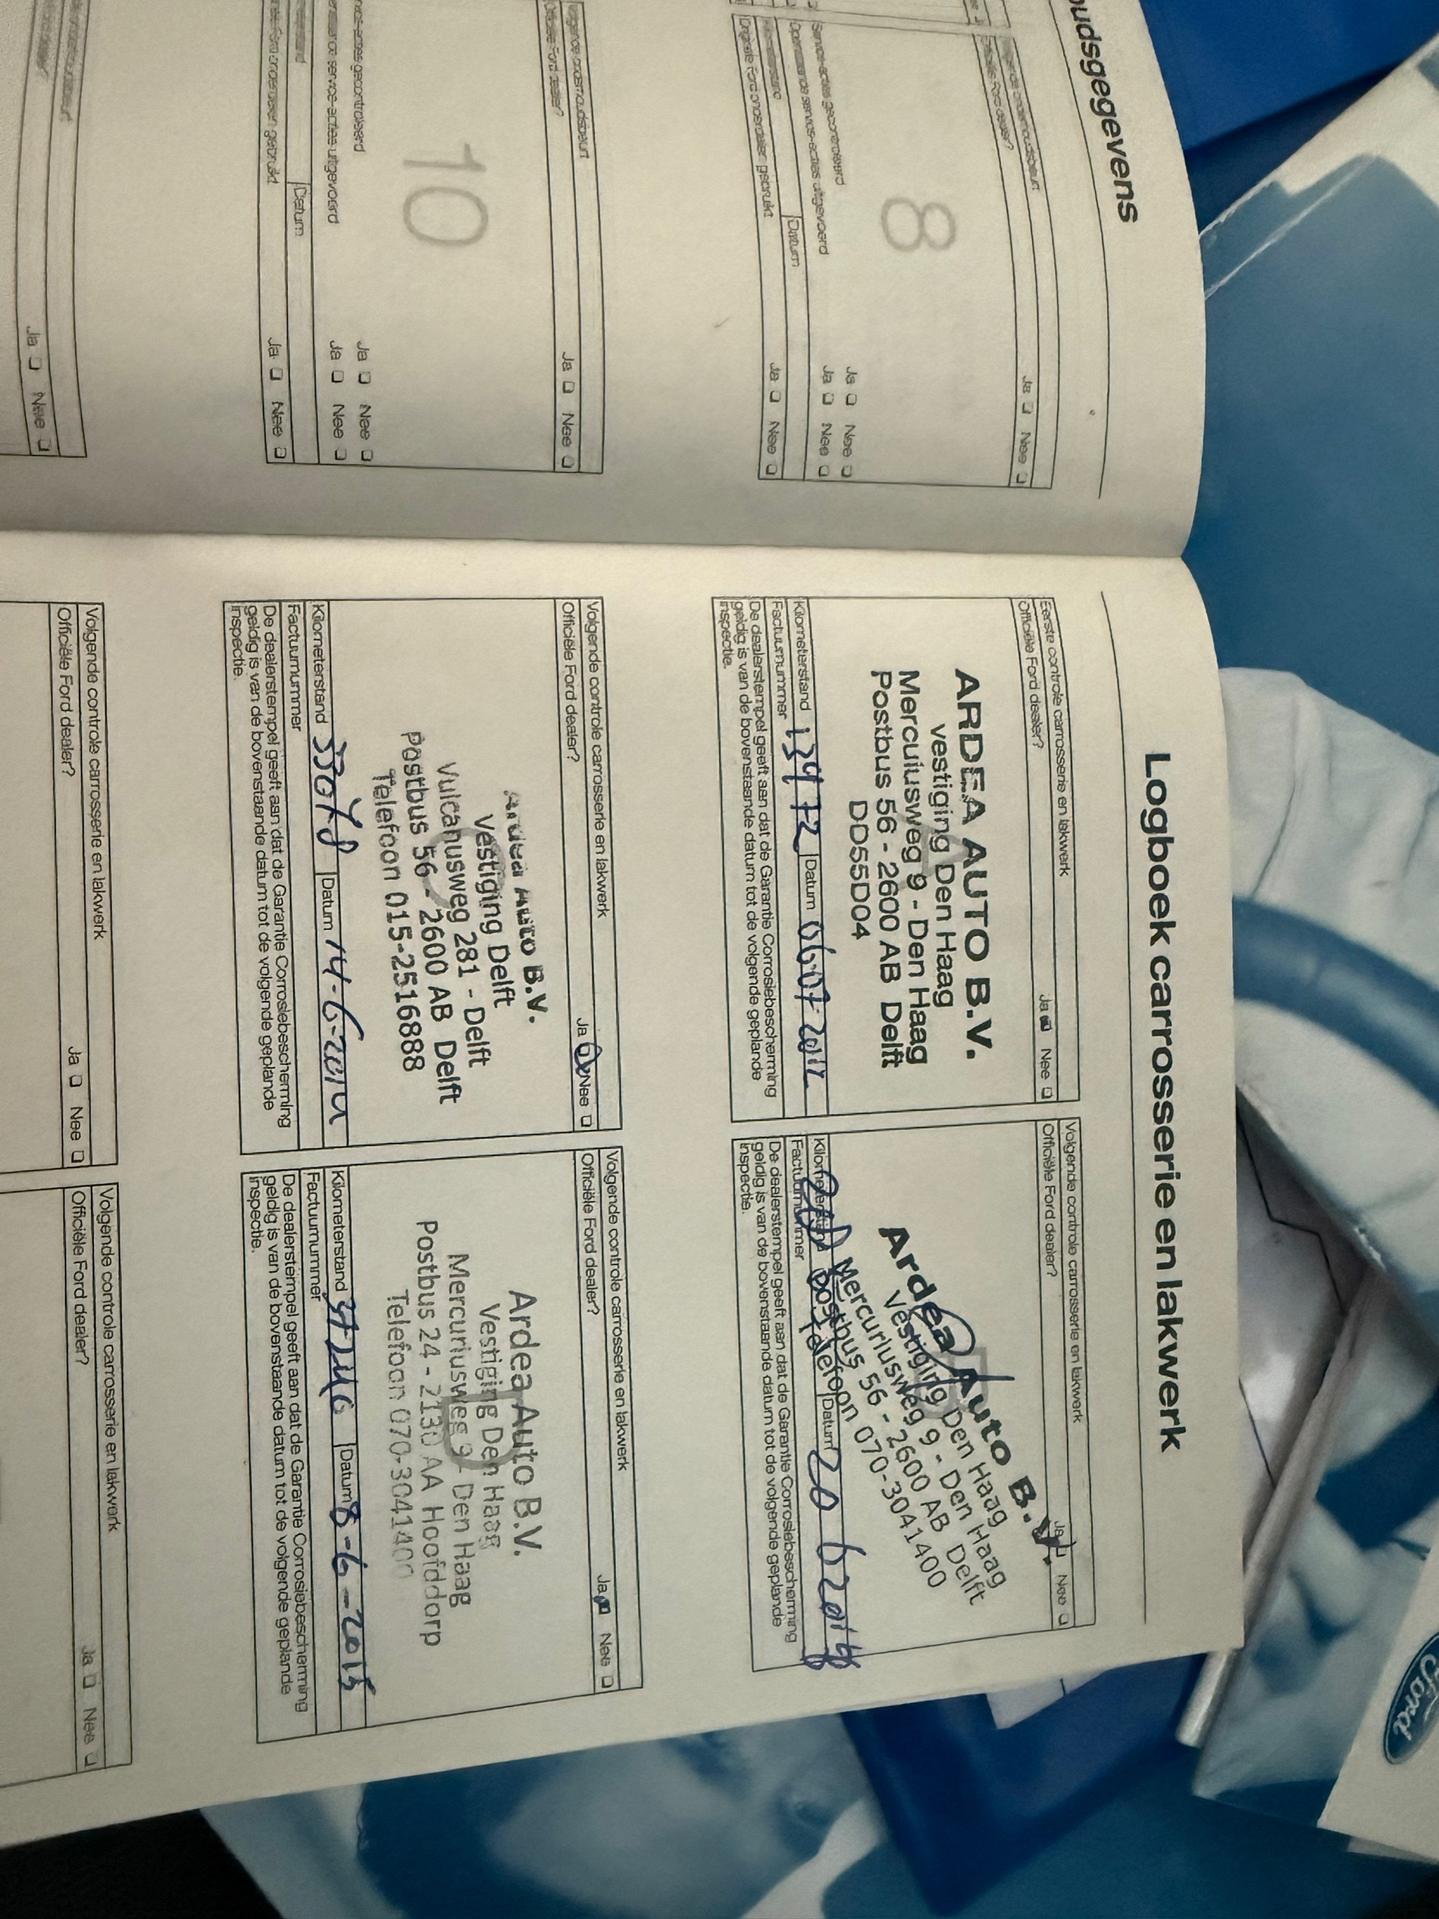 oudsgegevens
Officiële Ford dealer?
Ja ❑ Nee ❑
8
Service-acties gecontroleerd
Ja ❑ Nee ❑
Openstaande service-acties uitgevoerd
Ja ❑ Nee ❑
Datum
Originele Ford onderdelen gebruikt
Ja ❑ Nee ❑
Volgende onderhoudsbeurt
Officiële Ford dealer?
Ja ❑ Nee ❑
10
gecontroleerd
Ja ❑ Nee ❑
service-acties uitgevoerd
Ja ❑ Nee ❑
Datum
onderdelen gebruikt
Ja ❑ Nee ❑
Ja ❑ Nee ❑
Logboek carrosserie en lakwerk
Eerste controle carrosserie en lakwerk
Officiële Ford dealer?
Ja Nee ❑
ARDEA AUTO B.V.
vestiging Den Haag
Mercuiusweg 9 - Den Haag
Postbus 56 - 2600 AB Delft
DD55D04
Kilometerstand 13972 Datum 06-07-2012
Factuurnummer
De dealerstempel geeft aan dat de Garantie Corrosiebescherming
geldig is van de bovenstaande datum tot de volgende geplande
inspectie.
Volgende controle carrosserie en lakwerk
Officiële Ford dealer?
Ja Nee ❑
Ardea Auto B.V.
Vestiging Den Haag
Mercuriusweg 9 - Den Haag
Postbus 56 - 2600 AB Delft
Telefoon 070-3041400
Kilometerstand Datum 20
Factuurnummer
De dealerstempel geeft aan dat de Garantie Corrosiebescherming
geldig is van de bovenstaande datum tot de volgende geplande
inspectie.
Volgende controle carrosserie en lakwerk
Officiële Ford dealer?
Ja Nee ❑
Ardea Auto B.V.
Vestiging Delft
Vulcanusweg 281 - Delft
Postbus 56 - 2600 AB Delft
Telefoon 015-2516888
Kilometerstand Datum 14-6-2014
Factuurnummer
De dealerstempel geeft aan dat de Garantie Corrosiebescherming
geldig is van de bovenstaande datum tot de volgende geplande
inspectie.
Volgende controle carrosserie en lakwerk
Officiële Ford dealer?
Ja Nee ❑
Ardea Auto B.V.
Vestiging Den Haag
Mercuriusweg 9 - Den Haag
Postbus 24 - 2130 AA Hoofddorp
Telefoon 070-3041400
Kilometerstand Datum 8-6-2015
Factuurnummer
De dealerstempel geeft aan dat de Garantie Corrosiebescherming
geldig is van de bovenstaande datum tot de volgende geplande
inspectie.
Volgende controle carrosserie en lakwerk
Officiële Ford dealer?
Ja ❑ Nee ❑
Volgende controle carrosserie en lakwerk
Officiële Ford dealer?
Ja ❑ Nee ❑
Ford